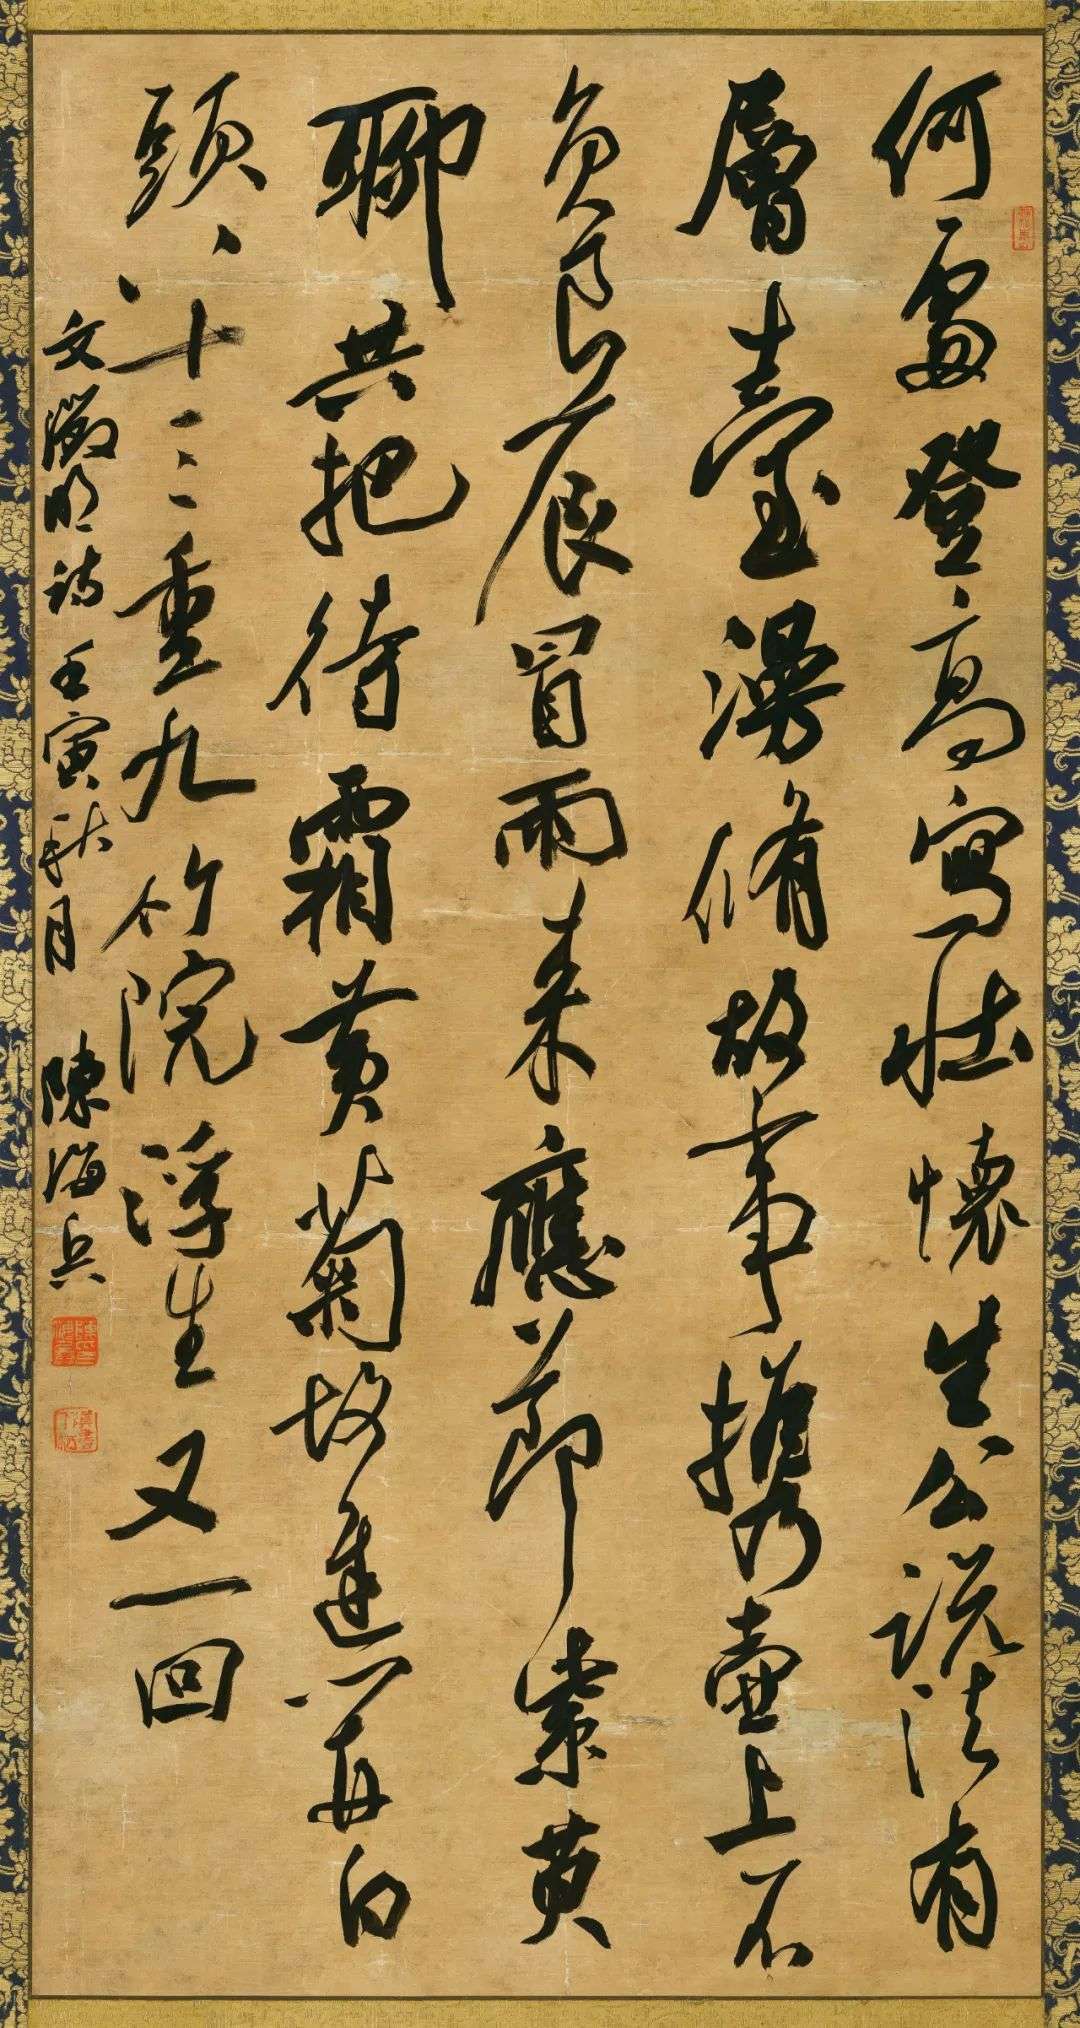 何處登高寫壯懷生公說法有
層臺漫脩故事攜壺上不
負良辰冒雨來應節紫萸
聊共把待霜黃菊故遲開白
頭八十三重九竹院浮生又一回
文徵明詩壬寅秋月 陳海兵